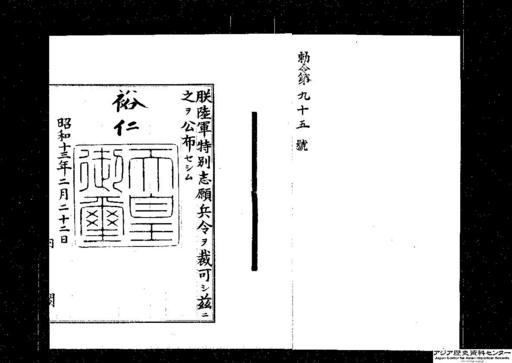 勅令第九十五號
朕陸軍特別志願兵令ヲ裁可シ茲ニ
之ヲ公布セシム
裕仁
天皇
御璽
昭和十三年二月二十二日
内閣
アジア歴史資料センター
Japan Center for Asian Historical Records